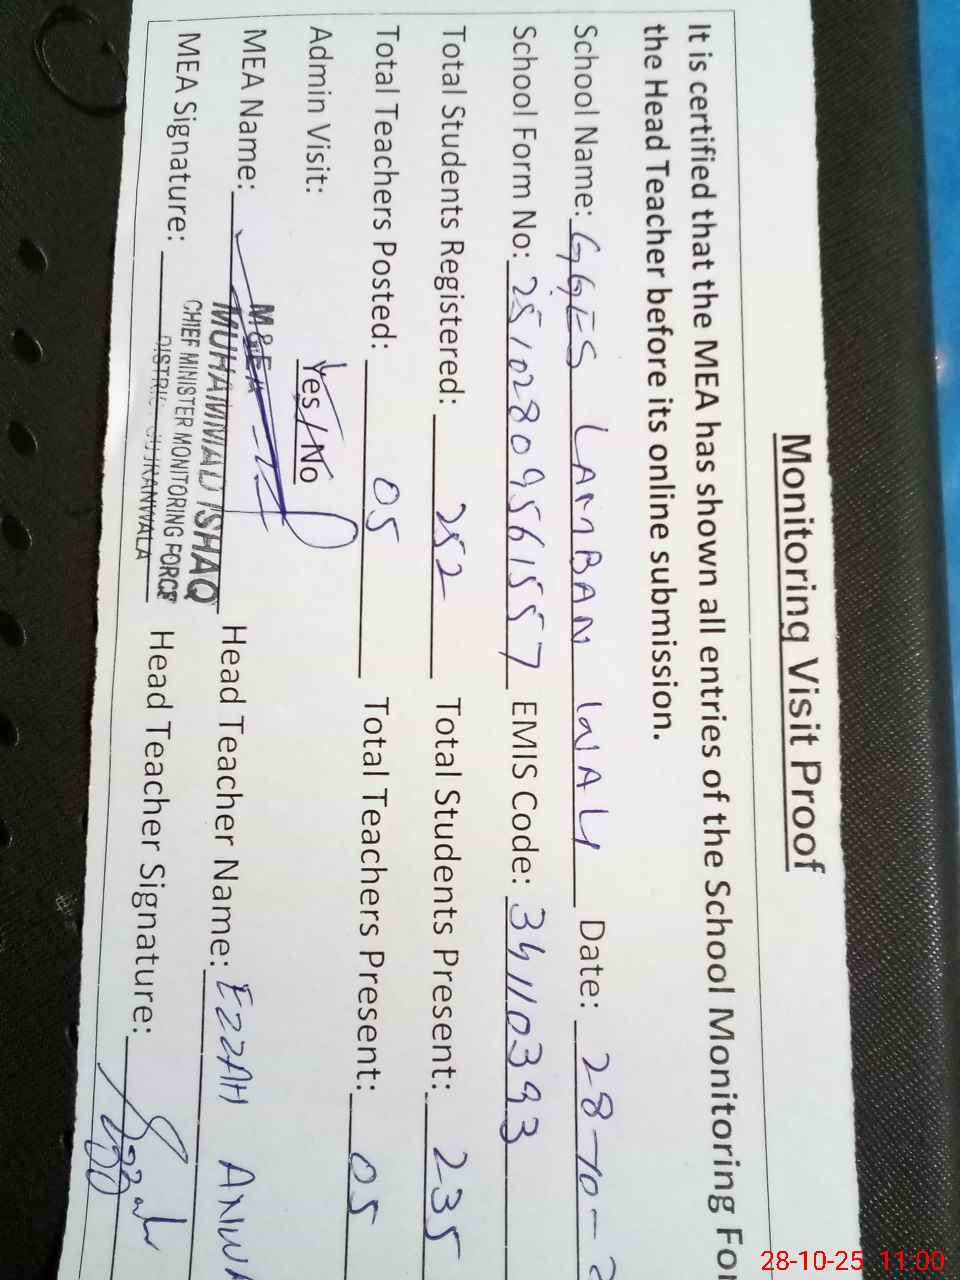 Monitoring Visit Proof
It is certified that the MEA has shown all entries of the School Monitoring For
the Head Teacher before its online submission.
School Name: GGES LAMBAN WALI Date: 28-10-2
School Form No: 25102809561557 EMIS Code: 34110393
Total Students Registered: 252 Total Students Present: 235
Total Teachers Posted: 05 Total Teachers Present: 05
Admin Visit: Yes / No
MEA Name: Head Teacher Name: EZZAH ANWA
MEA Signature: Head Teacher Signature:
MUHAMMAD ISHAQ
CHIEF MINISTER MONITORING FORCE
DISTRICT GUJRANWALA
28-10-25 11:00